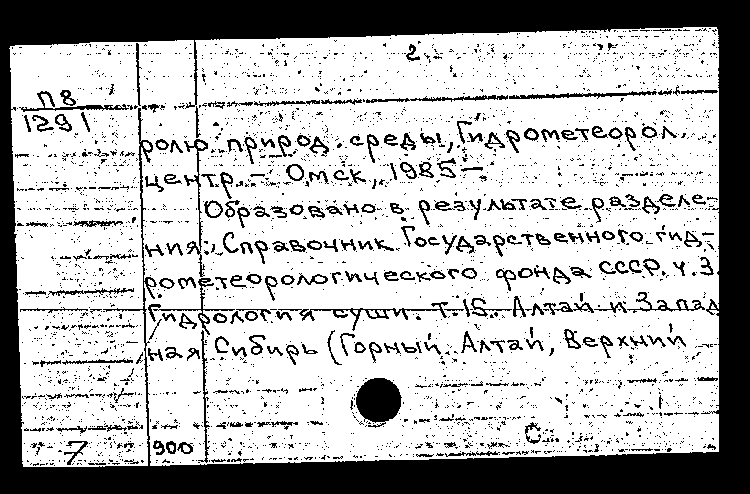 2
П8
1291
ролю природ. среды, Гидрометеорол.
центр. – Омск, 1985 –
Образовано в результате разделе-
ния: Справочник Государственного гид-
рометеорологического фонда СССР. ч. 3.
Гидрология суши. Т. 15. Алтай и Запад
ная Сибирь (Горный Алтай, Верхний
7 900 С